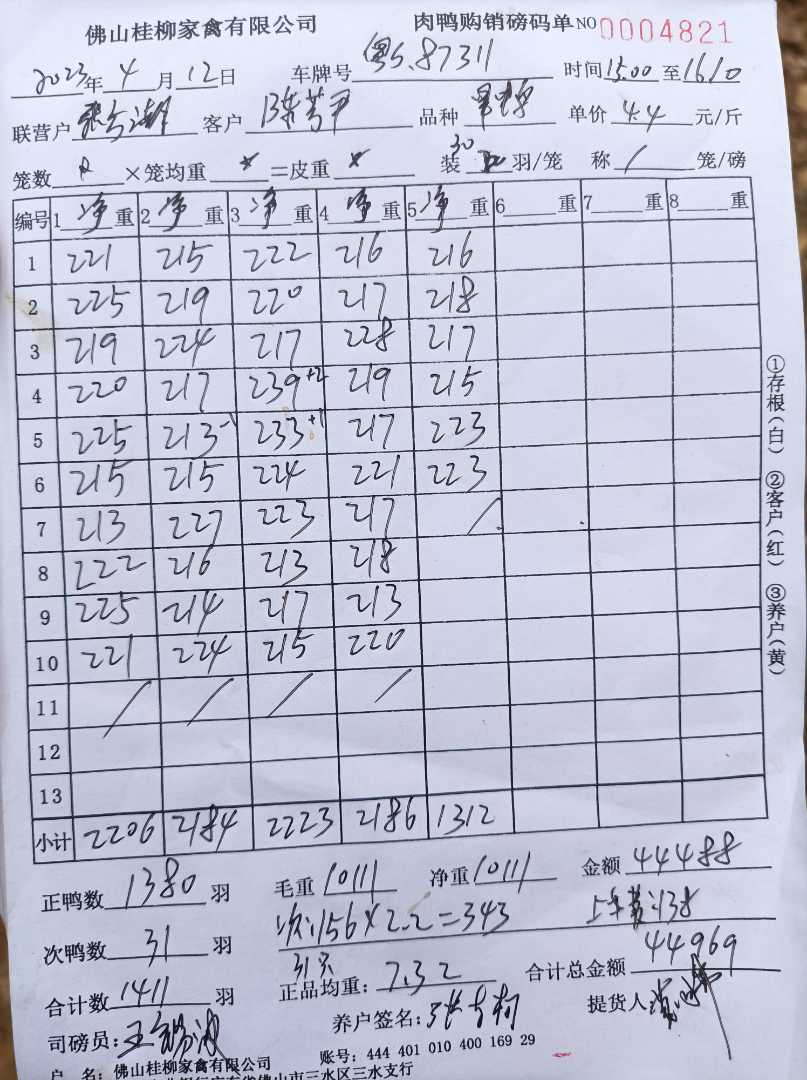 佛山桂柳家禽有限公司 肉鸭购销磅码单 NO 0004821
2023年4月12日 车牌号 粤S.87311 时间15:00至16:10
联营户 客户 陈芳 品种 单价 4.4 元/斤
笼数 ×笼均重 =皮重 装 30 羽/笼 称 / 笼/磅
编号 1 净 重 2 净 重 3 净 重 4 净 重 5 净 重 6 重 7 重 8 重
1 221 215 222 216 216
2 225 219 220 217 218
3 219 224 217 228 217
4 220 217 239+2 219 215
5 225 213-1 233+1 217 223
6 215 215 224 221 223
7 213 227 223 217 /
8 222 216 213 218
9 225 214 217 213
10 221 224 215 220
11 / / / /
12
13
小计 2206 2184 2223 2186 1312
①存根(白) ②客户(红) ③养户(黄)
正鸭数 1380 羽 毛重 10111 净重 10111 金额 44488
次:156×2.2=343 上车费:138
次鸭数 31 羽 31只
合计数 1411 羽 正品均重: 7.32 合计总金额 44969
司磅员: 王 养户签名: 张 提货人:
户 名: 佛山桂柳家禽有限公司 账号: 444 401 010 400 169 29
佛山市三水区三水支行